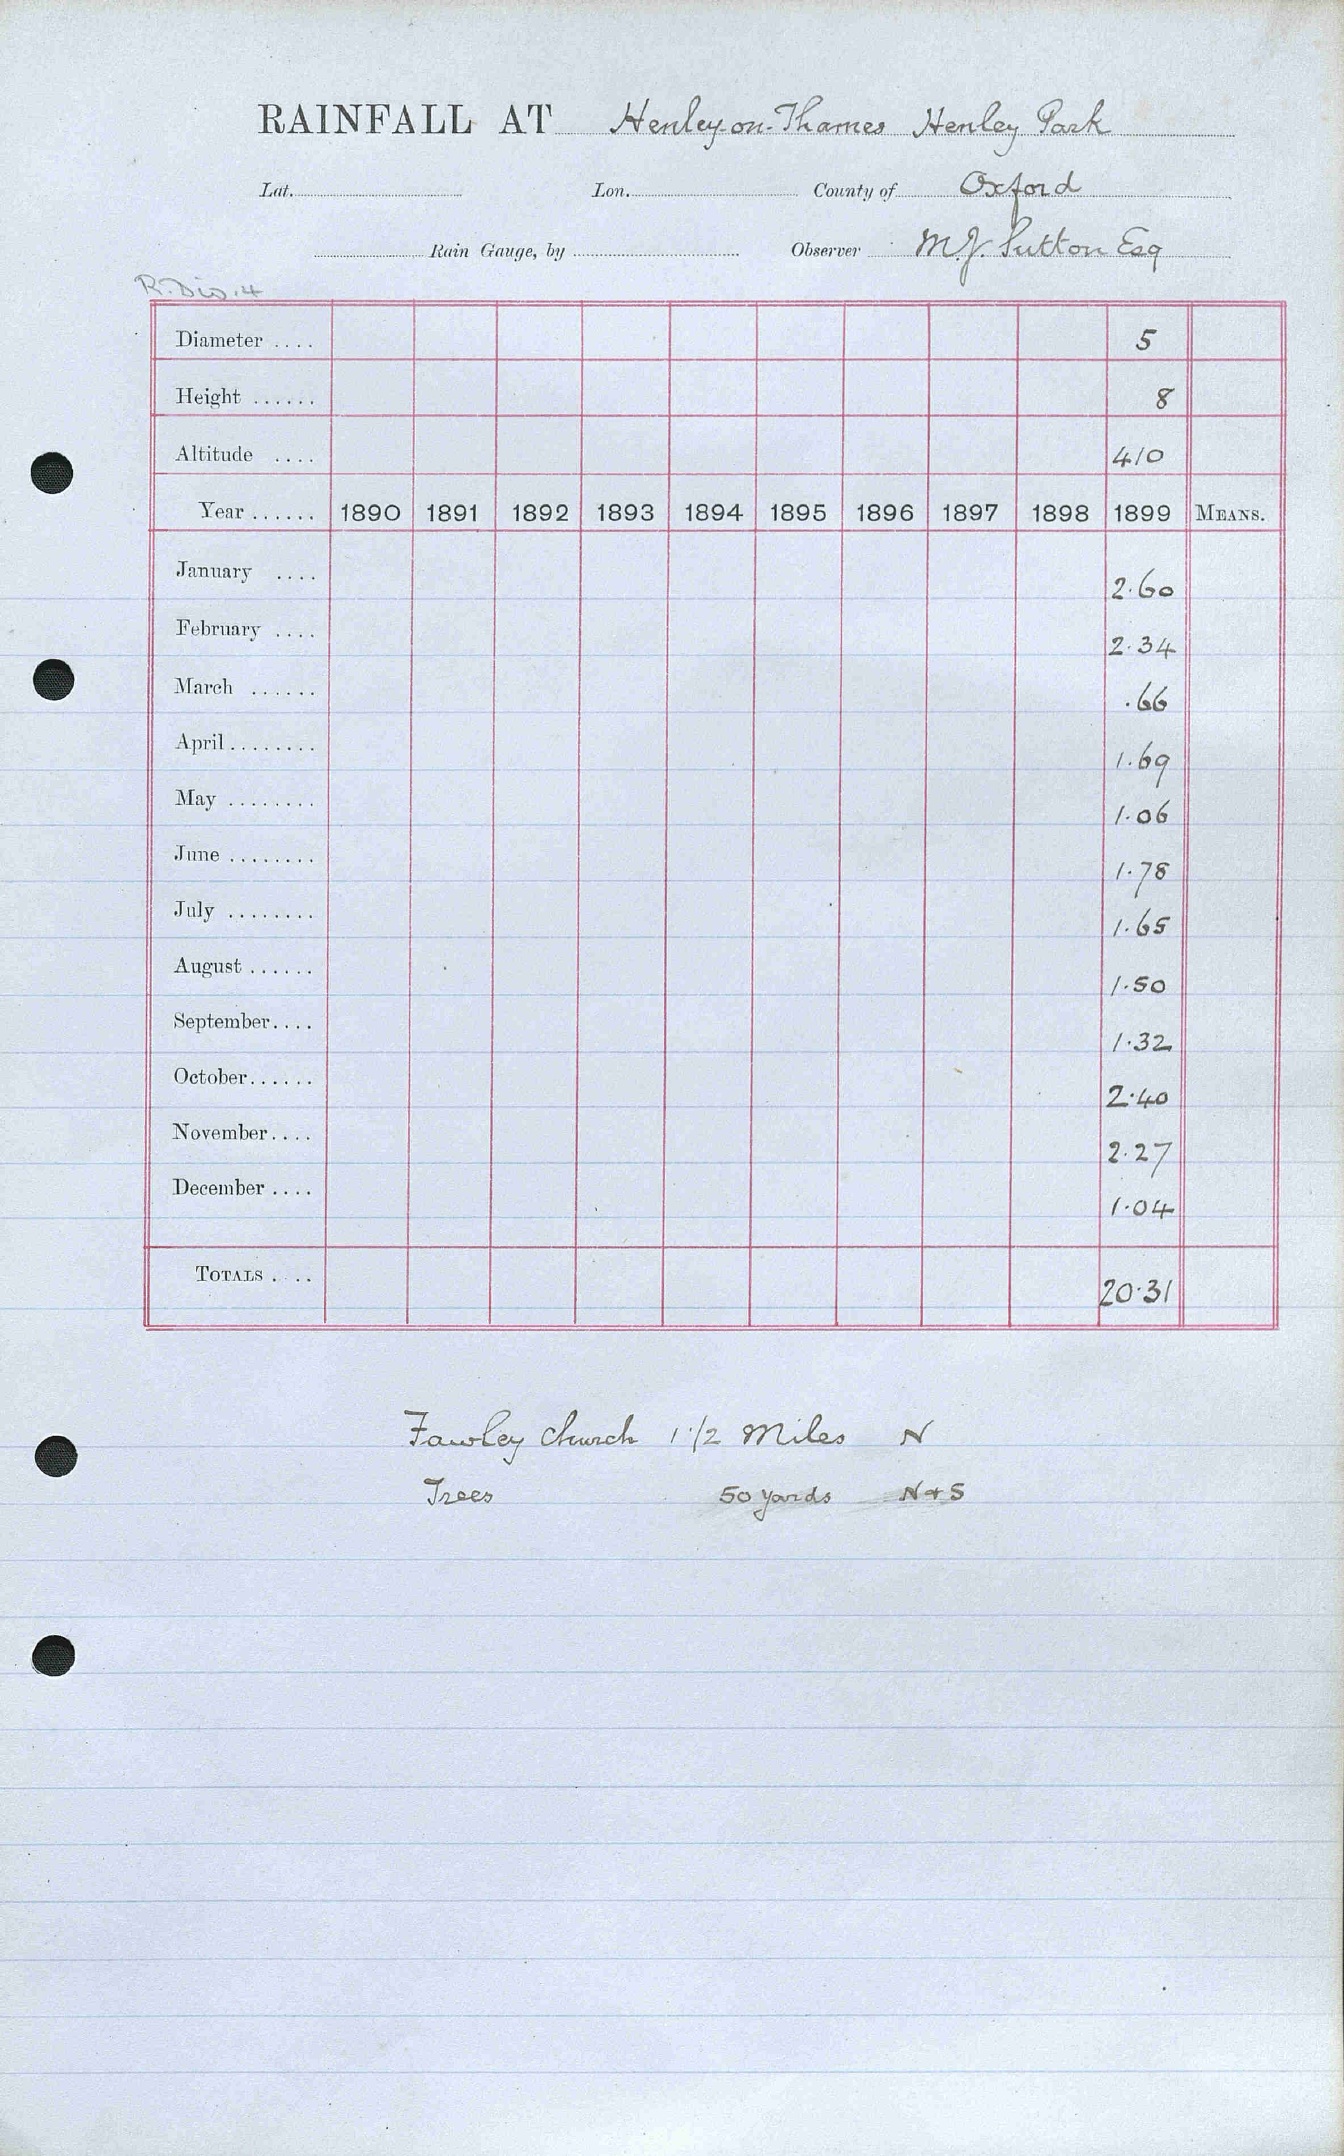 RAINFALL AT Henley-on-Thames Henley Park
Lat. Lon. County of Oxford
Rain Gauge, by Observer M.J. Sutton Esq
R. Div. 4
Diameter .... 5
Height ...... 8
Altitude .... 410
Year ...... 1890 1891 1892 1893 1894 1895 1896 1897 1898 1899 MEANS.
January .... 2.60
February .... 2.34
March ...... .66
April ........ 1.69
May ........ 1.06
June ........ 1.78
July ........ 1.65
August ...... 1.50
September.... 1.32
October...... 2.40
November.... 2.27
December .... 1.04
TOTALS .... 20.31
Fawley Church 1 1/2 Miles N
Trees 50 yards N & S